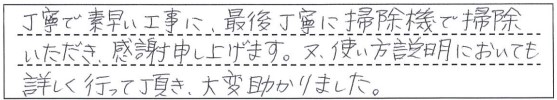 丁寧で素早い工事に、最後丁寧に掃除機で掃除
いただき、感謝申し上げます。又、使い方説明においても
詳しく行って頂き、大変助かりました。